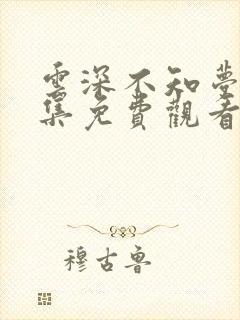 雲深不知夢
集免費觀看
穆古魯